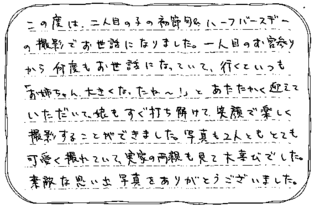 この度は、二人目の子の初節句&ハーフバースデー
の撮影でお世話になりました。一人目のお宮参り
から何度もお世話になっていて、行くといつも
「お姉ちゃん、大きくなったね〜!」とあたたかく迎えて
いただいて、娘もすぐ打ち解けて、笑顔で楽しく
撮影することができました。写真も2人ともとても
可愛く撮れていて、実家の両親も見て大喜びでした。
素敵な思い出写真をありがとうございました。